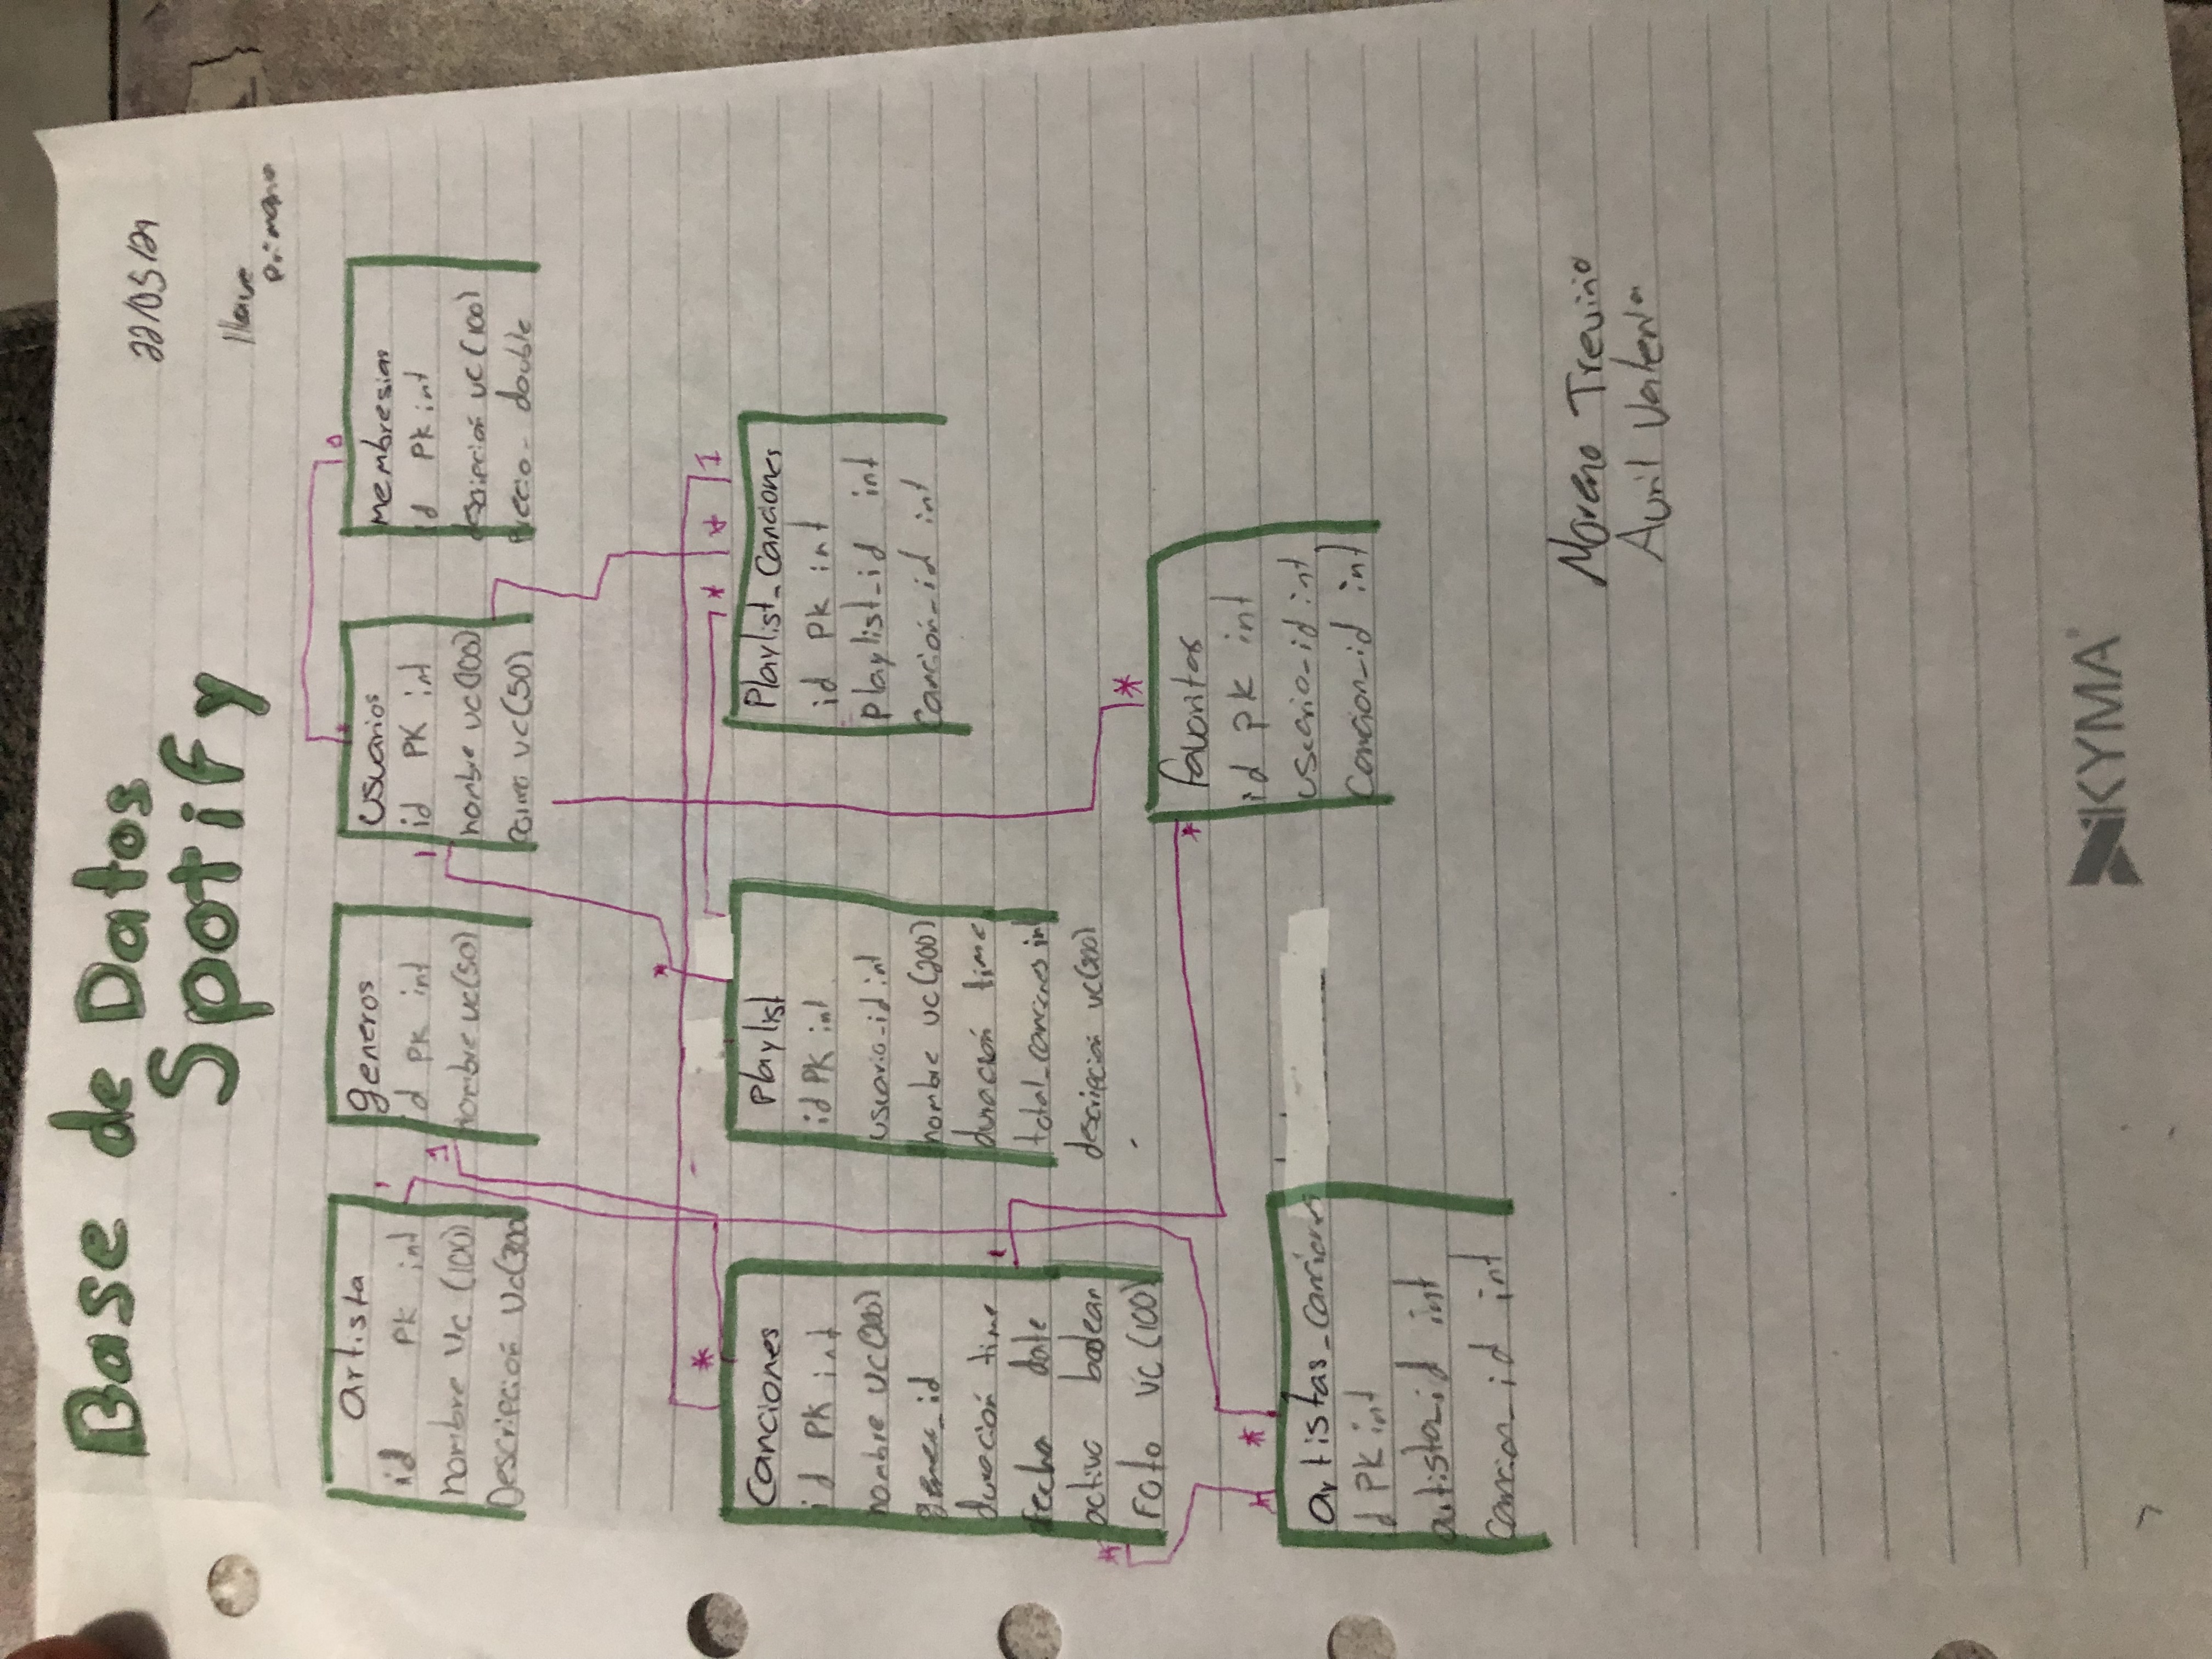 Base de Datos
Spotify
22/05/24
llave
primaria
artista
id PK int
nombre vc (100)
Descripción vc(300
generos
id PK int
nombre vc(50)
usuarios
id PK int
nombre vc(100)
vc(50)
membresias
id PK int
descripción vc(100)
precio- double
1
1
1
*
*
*
*
*
1
canciones
id PK int
nombre vc(200)
genero_id
duración time
fecha date
activo boolean
Foto vc (100)
Playlist
id PK int
usuario-id int
nombre vc(200)
duración time
total_canciones int
descripción vc(200)
Playlist_Canciones
id PK int
playlist_id int
canción_id int
1
*
*
*
*
*
favoritos
id pk int
usuario_id int
Cancion_id int
artistas_canciones
id PK int
artista_id int
cancion_id int
Moreno Treviño
Avril Valeria
KYMA